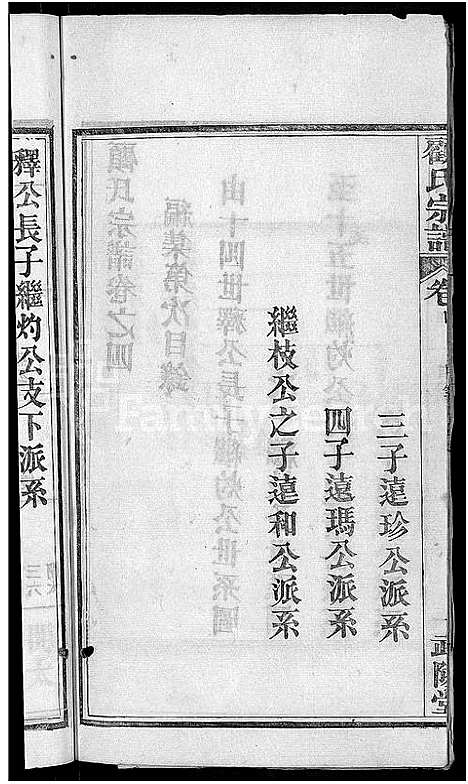 顧氏宗譜
卷
武陵堂
三子遠珍公派系
四子遠瑪公派系
繼枝公之子遠和公派系
顧氏宗譜卷之四
編某第次目錄
由十四世釋公長子繼灼公世系圖
至十五世繼灼公
釋公長子繼灼公支下派系